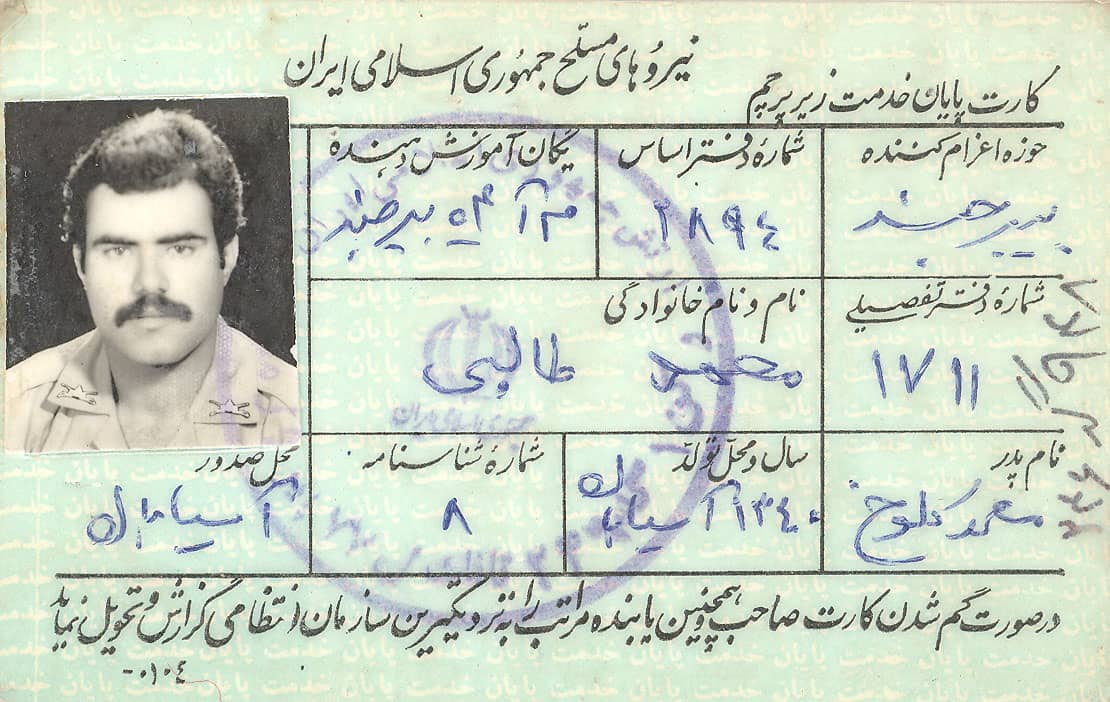 نیروهای مسلح جمهوری اسلامی ایران
کارت پایان خدمت زیر پرچم
حوزه اعزام کننده
بیرجند
شمارهٔ دفتر اساس
۲۸۹٤
یگان آموزش دهنده
م آ ۰۴ بیرجند
شمارهٔ دفتر تفصیلی
۱۷۱۱
نام و نام خانوادگی
محمد طالبی
نام پدر
محمد کلوخ
سال و محل تولد
۱۳٤۰ آسیابان
شمارهٔ شناسنامه
۸
محل صدور
آسیابان
درصورت گم شدن کارت صاحب و همچنین یابنده مراتب را به نزدیکترین سازمان انتظامی گزارش و تحویل نماید
۰۱۰٤-